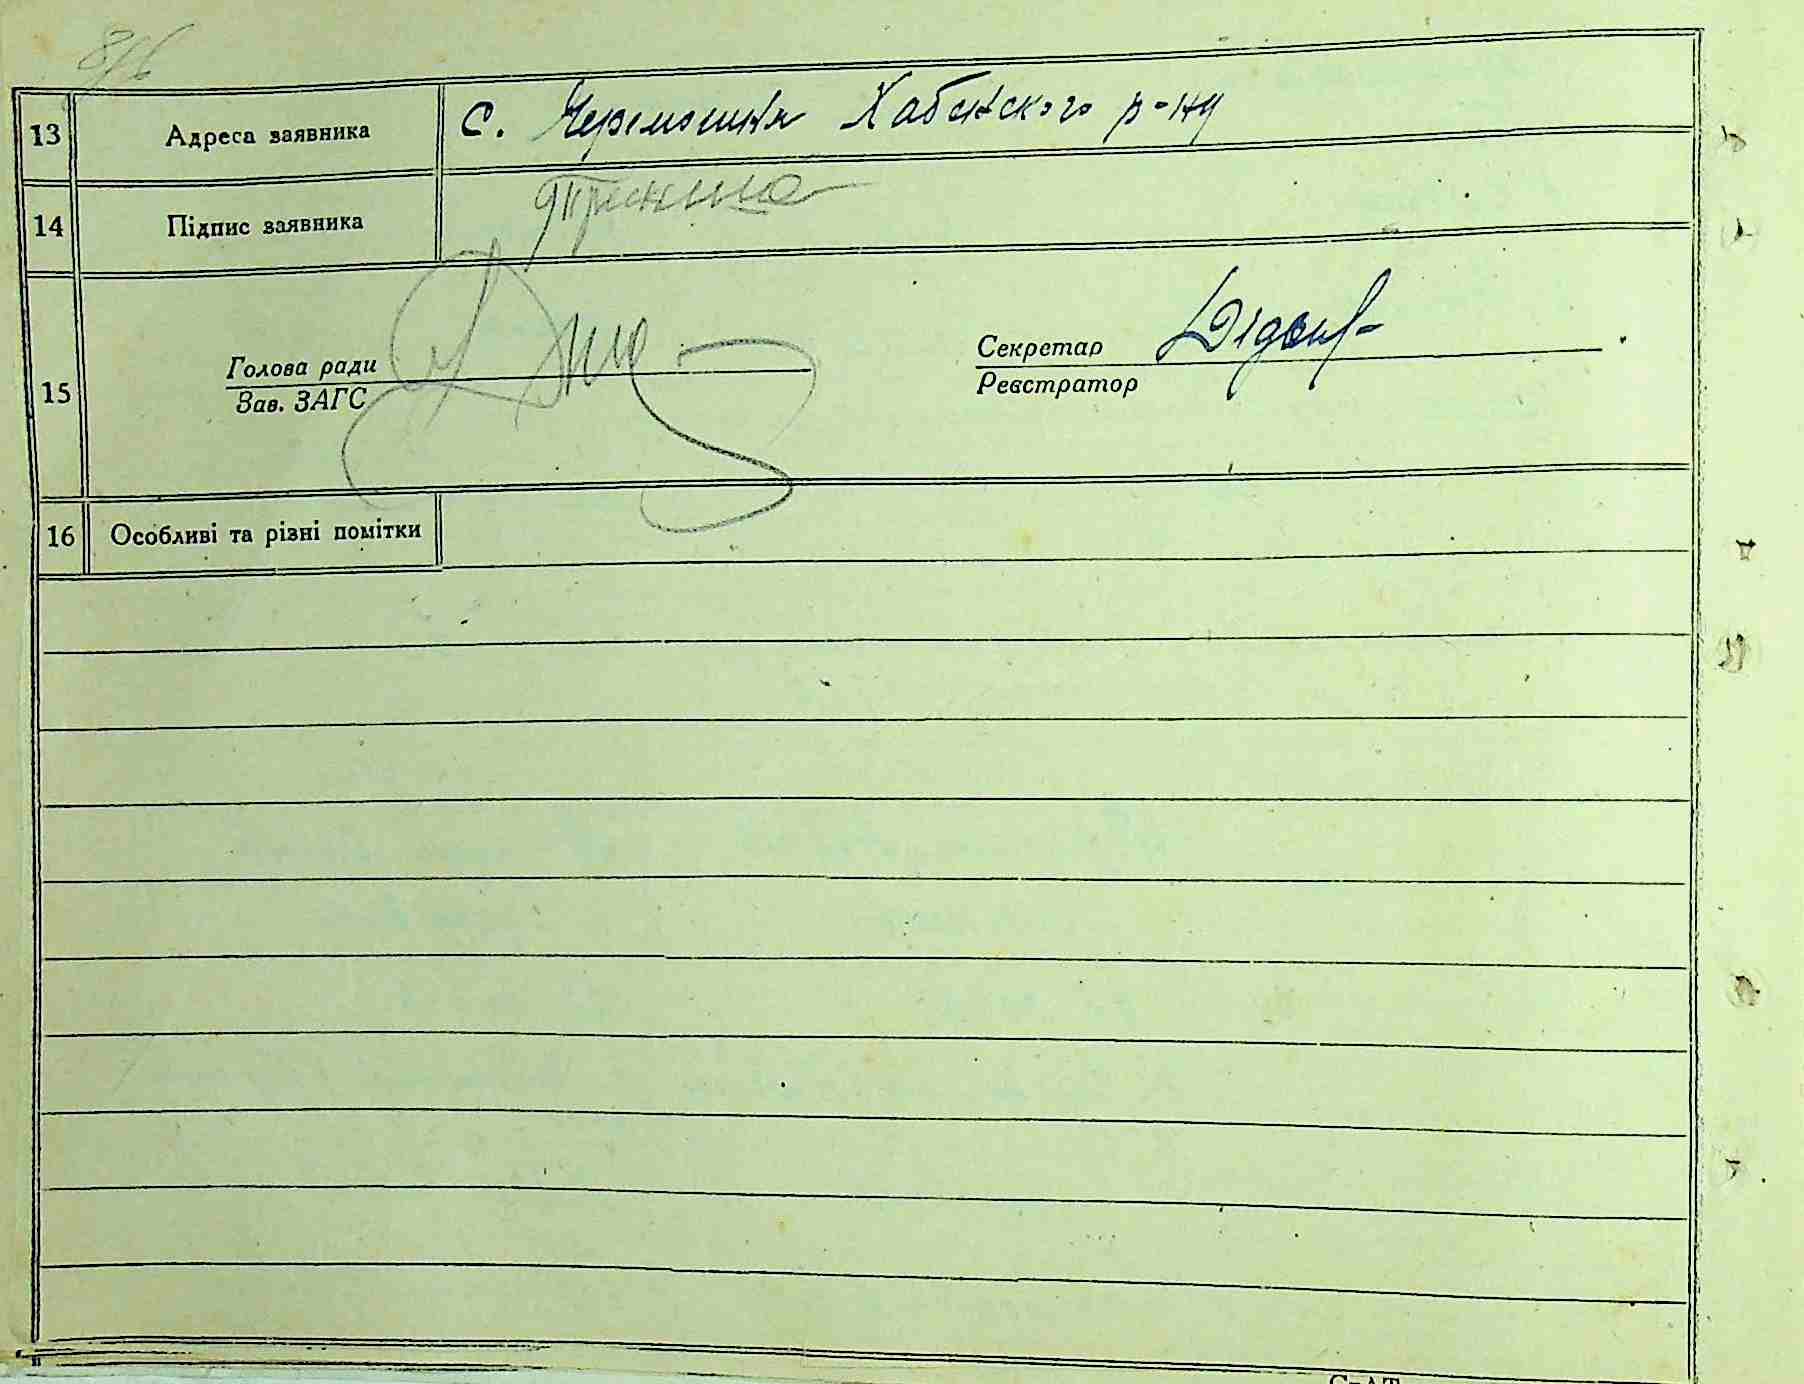 8/16
13 Адреса заявника с. Черемошня Хабенского р-ну
14 Підпис заявника
15 Голова ради Секретар
Зав. ЗАГС Реєстратор
16 Особливі та різні помітки